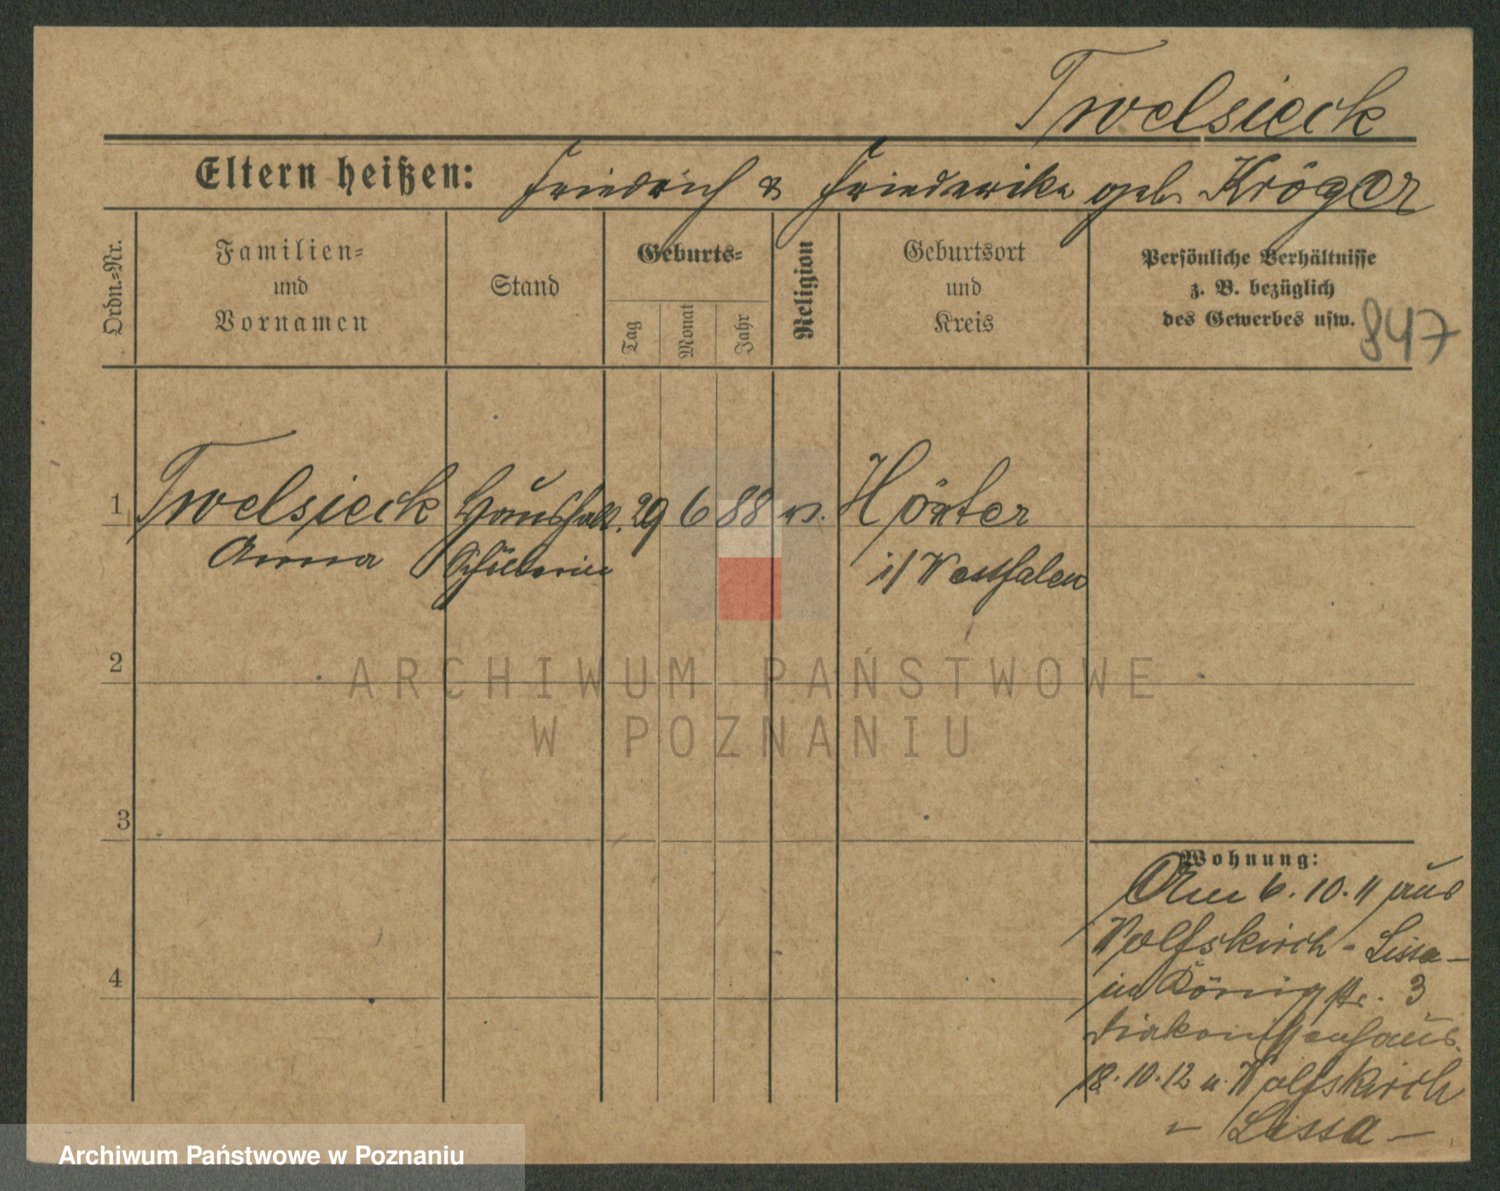 Twelsieck
Eltern heißen: Friedrich & Friederike geb. Kröger
Ordn.=Nr.
Familien=
und
Vornamen
Stand
Geburts=
Tag
Monat
Jahr
Religion
Geburtsort
und
Kreis
Persönliche Verhältnisse
z. B. bezüglich
des Gewerbes usw.
847
1 Twelsieck Haushalt. 29 6 88 ev. Höxter
Anna Schülerin i/ Westfalen
2
ARCHIWUM PAŃSTWOWE
W POZNANIU
3
Wohnung:
Am 6.10.11 aus
Wolfskirch - Lissa -
in Königstr. 3
Diakonissenhaus.
18.10.12 n. Wolfskirch
- Lissa -
4
Archiwum Państwowe w Poznaniu